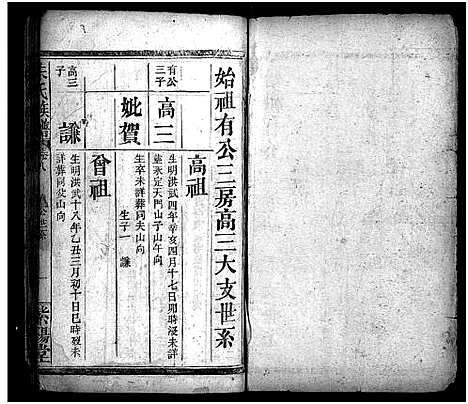 始祖有公三房高三大支世系
高祖
有公三子
高三
生明洪武四年辛亥四月十七日卯時沒未詳
葬永定天門山子山午向
妣賀
生卒未詳葬同夫山向
生子一 謙
曾祖
高三子
謙
生明洪武十八年乙丑三月初十日巳時歿未
詳葬同公山向
氏族譜
紫陽堂